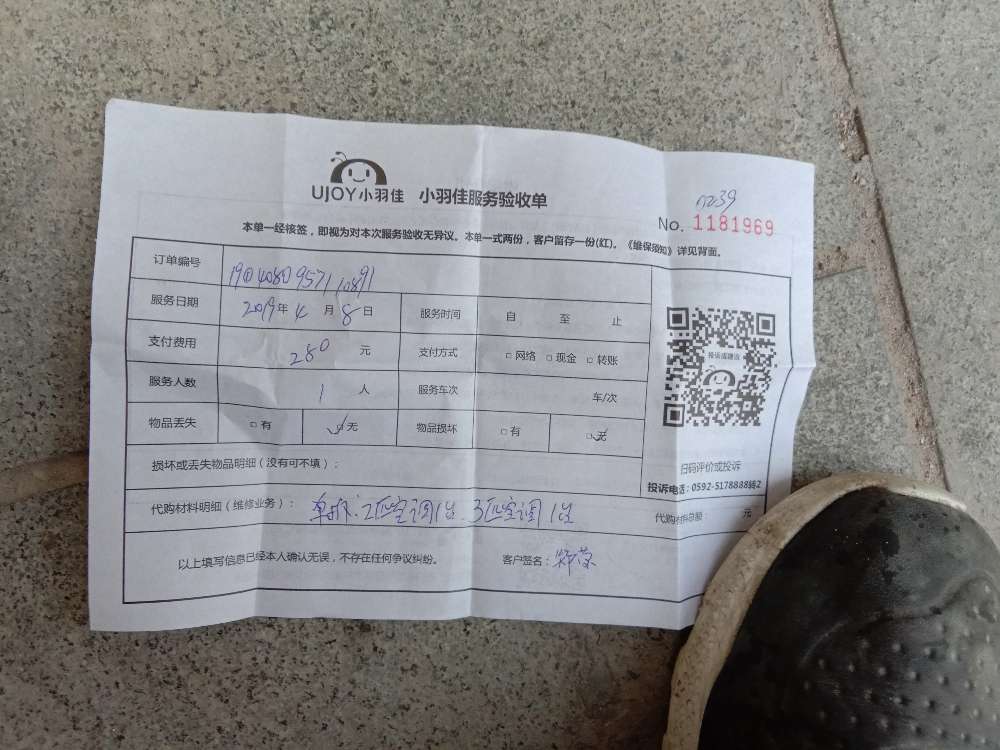 UJOY小羽佳 小羽佳服务验收单
No. 1181969
本单一经核签，即视为对本次服务验收无异议。本单一式两份，客户留存一份(红)。《维保须知》详见背面。
订单编号
服务日期 2019年 4月 8日 服务时间 自 至 止
支付费用 280 元 支付方式 □网络 □现金 □转账
服务人数 1 人 服务车次 车/次
物品丢失 □有 □无 物品损坏 □有 □无
损坏或丢失物品明细（没有可不填）：
投诉或建议
扫码评价或投诉
投诉电话：0592-5178888转2
代购材料明细（维修业务）： 2匹空调1台 3匹空调1台 代购材料总额： 元
以上填写信息已经本人确认无误，不存在任何争议纠纷。 客户签名：